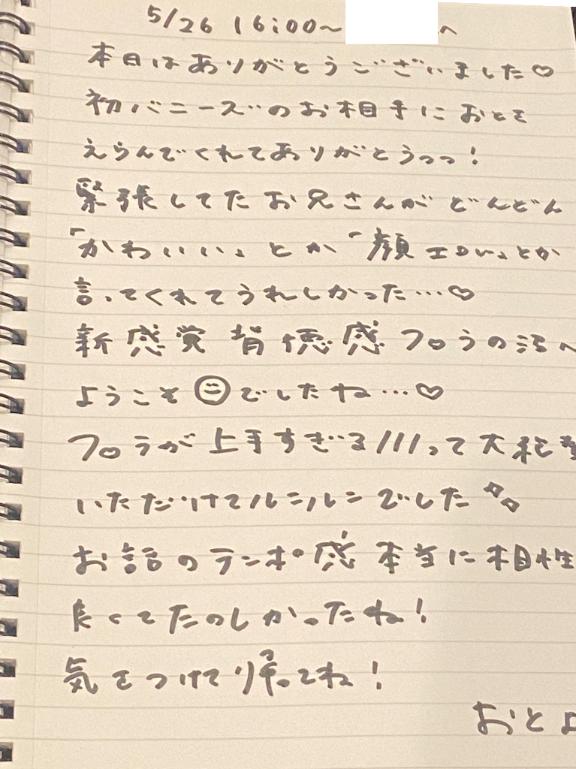 5/26 16:00〜 へ
本日はありがとうございました♡
初バニーズのお相手におとを
えらんでくれてありがとうっっ!
緊張してたお兄さんがどんどん
「かわいいい」とか「顔エロい」とか
言ってくれてうれしかった…♡
新感覚背徳感フロうの沼へ
ようこそ☺でしたね…♡
フロラが上手すぎる///って大絶賛
いただけてルンルンでした
お話のテンポ感本当に相性
良くてたのしかったね!
気をつけて帰ってね!
おとよ